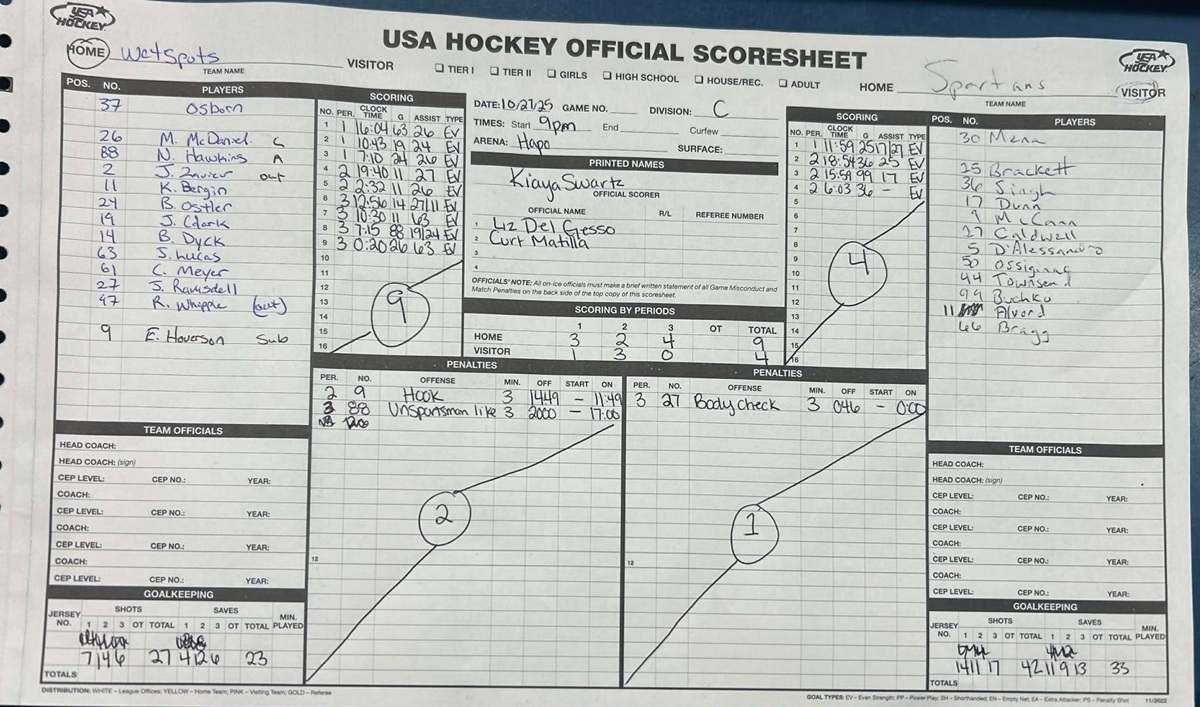 USA HOCKEY
USA HOCKEY OFFICIAL SCORESHEET
USA HOCKEY
HOME Wetspots VISITOR
TEAM NAME
☐ TIER I ☐ TIER II ☐ GIRLS ☐ HIGH SCHOOL ☐ HOUSE/REC. ☐ ADULT
HOME Spartans VISITOR
TEAM NAME
POS. NO. PLAYERS
37 Osborn
26 M. McDaniel C
88 N. Hawkins A
2 J. Zavier out
11 K. Bergin
24 B. Ostler
19 J. Clark
14 B. Dyck
63 J. Lucas
61 C. Meyer
27 J. Ramsdell
97 R. Whipple (out)
9 E. Hoverson Sub
SCORING
NO. PER. CLOCK TIME G ASSIST TYPE
1 1 16:04 63 26 EV
2 1 10:43 19 24 EV
3 1 7:10 24 26 EV
4 2 19:40 11 27 EV
5 2 2:32 11 26 EV
6 3 12:56 14 27/11 EV
7 3 10:30 11 63 EV
8 3 7:15 88 19/24 EV
9 3 0:20 26 63 EV
10
11
12
13
14
15
16
9
DATE: 10/27/25 GAME NO. DIVISION: C
TIMES: Start 9pm End Curfew
ARENA: Hapo SURFACE:
PRINTED NAMES
Kiaya Swartz
OFFICIAL SCORER
OFFICIAL NAME R/L REFEREE NUMBER
1 Liz Del Gesso
2 Curt Matilla
3
4
OFFICIALS' NOTE: All on-ice officials must make a brief written statement of all Game Misconduct and
Match Penalties on the back side of the top copy of this scoresheet.
SCORING BY PERIODS
1 2 3 OT TOTAL
HOME 3 2 4 9
VISITOR 1 3 0 4
SCORING
NO. PER. CLOCK TIME G ASSIST TYPE
1 1 11:59 25 17/27 EV
2 2 18:54 36 25 EV
3 2 15:59 99 17 EV
4 2 6:03 36 - EV
5
6
7
8
9
10
11
12
13
14
15
16
4
POS. NO. PLAYERS
30 Mena
25 Brackett
36 Singh
17 Dunn
9 McCann
27 Caldwell
5 D'Alessandro
50
44 Townsend
99 Buchko
11 Alvord
66 Bragg
PENALTIES
PER. NO. OFFENSE MIN. OFF START ON
2 9 Hook 3 1449 - 11:49
3 88 Unsportsman like 3 2000 - 17:00
2
12
PENALTIES
PER. NO. OFFENSE MIN. OFF START ON
3 27 Body check 3 046 - 0:00
1
12
TEAM OFFICIALS
HEAD COACH:
HEAD COACH: (sign)
CEP LEVEL: CEP NO.: YEAR:
COACH:
CEP LEVEL: CEP NO.: YEAR:
COACH:
CEP LEVEL: CEP NO.: YEAR:
COACH:
CEP LEVEL: CEP NO.: YEAR:
GOALKEEPING
SHOTS SAVES
JERSEY NO. 1 2 3 OT TOTAL 1 2 3 OT TOTAL MIN. PLAYED
7 14 6 27 4 12 6 23
TOTALS
TEAM OFFICIALS
HEAD COACH:
HEAD COACH: (sign)
CEP LEVEL: CEP NO.: YEAR:
COACH:
CEP LEVEL: CEP NO.: YEAR:
COACH:
CEP LEVEL: CEP NO.: YEAR:
COACH:
CEP LEVEL: CEP NO.: YEAR:
GOALKEEPING
SHOTS SAVES
JERSEY NO. 1 2 3 OT TOTAL 1 2 3 OT TOTAL MIN. PLAYED
14 11 17 42 11 9 13 33
TOTALS
DISTRIBUTION: WHITE – League Offices; YELLOW – Home Team; PINK – Visiting Team; GOLD – Referee
GOAL TYPES: EV – Even Strength; PP – Power Play; SH – Shorthanded; EN – Empty Net; EA – Extra Attacker; PS – Penalty Shot 11/2022